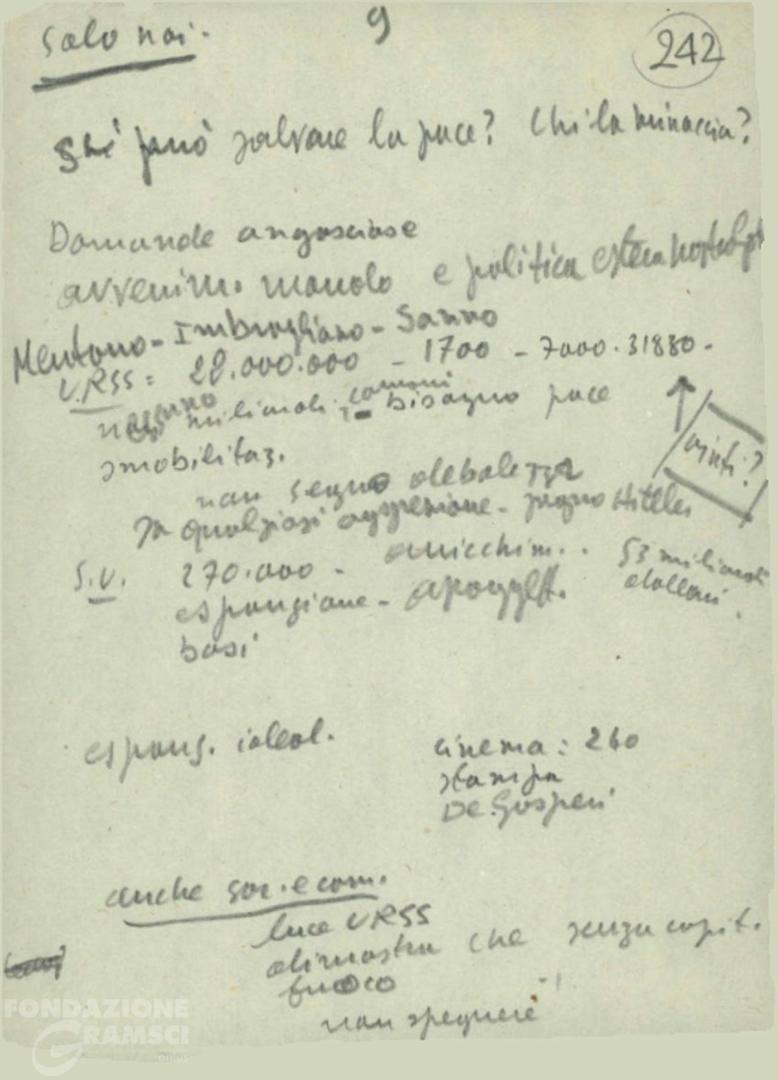 9
242
Solo noi.
Chi può salvare la pace? Chi la minaccia?
Domande angosciose
avvenim. mondo e politica estera nostro
Mentono - Imbrogliano - Sanno
U.RSS = 28.000.000 - 1700 - 7000. 31880.
nessuno miliardi. comoni bisogno pace
vinti?
smobilitaz.
non segno debolezza
qualsiasi aggressione - Hitler
S.U. 270.000 - anicchim.. 53 miliardi
dollari.
espansione - appogg
basi
espans. ideol.
cinema: 260
stampa
De Gasperi
anche soc. econ.
luce URSS
dimostra che senza capit.
fuoco
non spegnere
FONDAZIONE
GRAMSCI